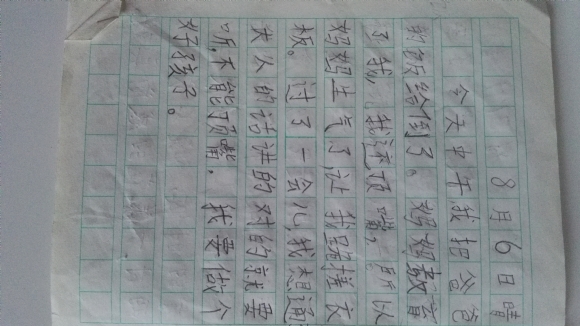 8月6日晴
今天中午我把爸爸
的饭给倒了。妈妈教育
了我,我还顶嘴,所以
妈妈生气了让我跪搓衣
板。过了一会儿,我想通
大人的话讲的对的就要
听,不能顶嘴。我要做个
好孩子。